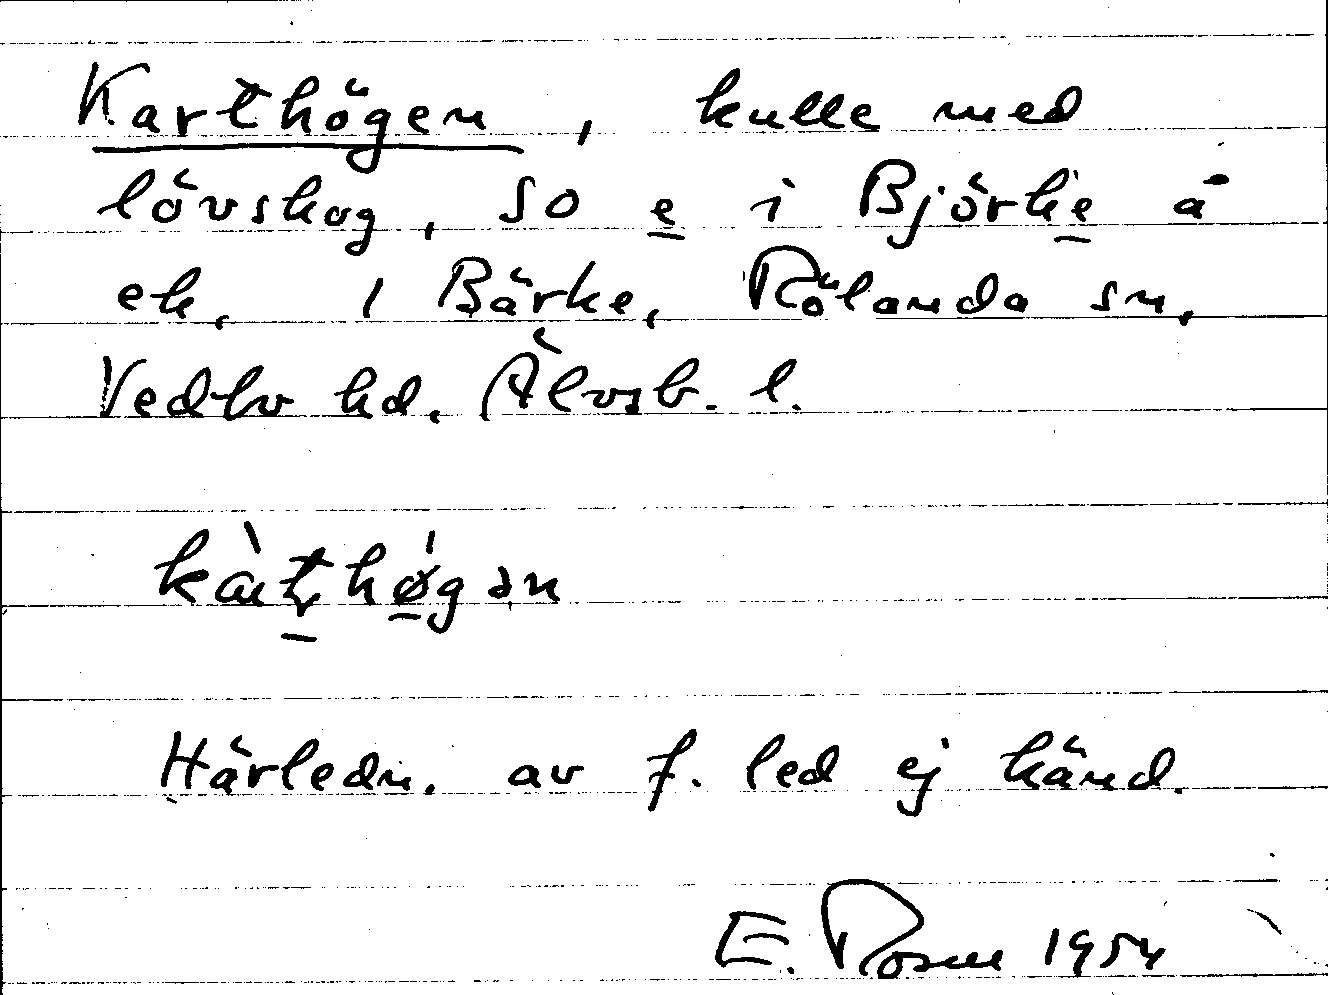 Karthögen, kulle med
lövskog, SO e i Björke å
ek. 1 Bärke, Rölanda sn,
Vedbo hd. Älvsb. l.
Härledn. av f. led ej känd.
E. Rosen 1954